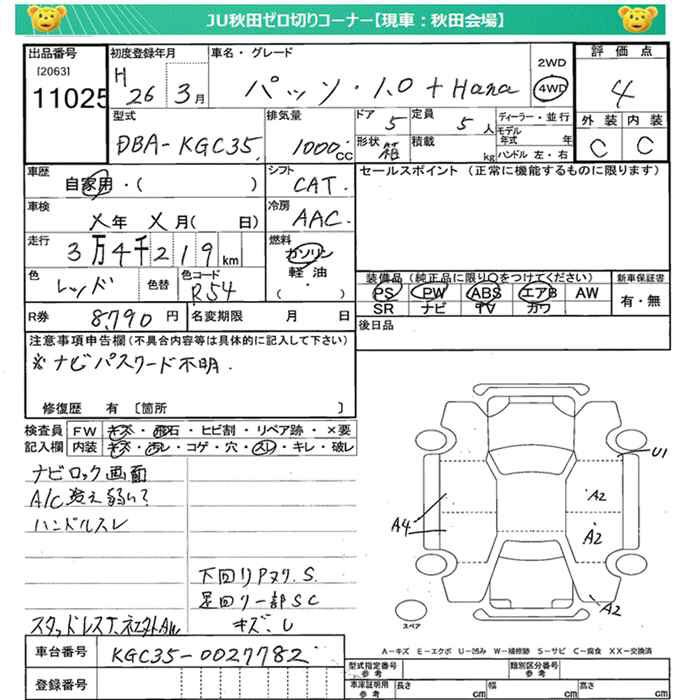 JU秋田ゼロ切りコーナー【現車：秋田会場】
出品番号
[2063]
11025
初度登録年月
H 26年 3月
車名・グレード
パッソ・1.0 + Hana
2WD
4WD
評価点
4
外装 内装
C C
型式
DBA-KGC35
排気量
1000cc
ドア 5
定員 5人
形状 箱
積載 kg
ディーラー・並行
モデル年式 年
ハンドル 左・右
車歴
自家用・( )
シフト
CAT.
セールスポイント（正常に機能するものに限ります）
車検
メ年 メ月( 日)
冷房
AAC.
走行
3万4千219km
燃料
ガソリン
軽油
( ・ )
色
レッド
色替
色コード
R54
装備品（純正品に限り○をつけてください）
PS PW ABS エアB AW
SR ナビ TV カワ
新車保証書
有・無
R券 8790円
名変期限 月 日
後日品
注意事項申告欄(不具合内容等は具体的に記入して下さい)
※ナビパスワード不明.
修復歴 有 〔箇所 〕
検査員
記入欄
FW キズ・飛石・ヒビ割・リペア跡・×要
内装 キズ・汚レ・コゲ・穴・スレ・キレ・破レ
ナビロック画面
A/C 弱い?
ハンドルスレ
下回りPヌリ.S.
足回り一部SC
キズ.
U1
A2
A2
A4
A2
スペア
A－キズ E－エクボ U－凹み W－補修跡 S－サビ C－腐食 XX－交換済
車台番号
KGC35-0027782
登録番号
型式指定番号
参考
類別区分番号
参考
車庫証明用
参考
長さ cm 幅 cm 高さ cm